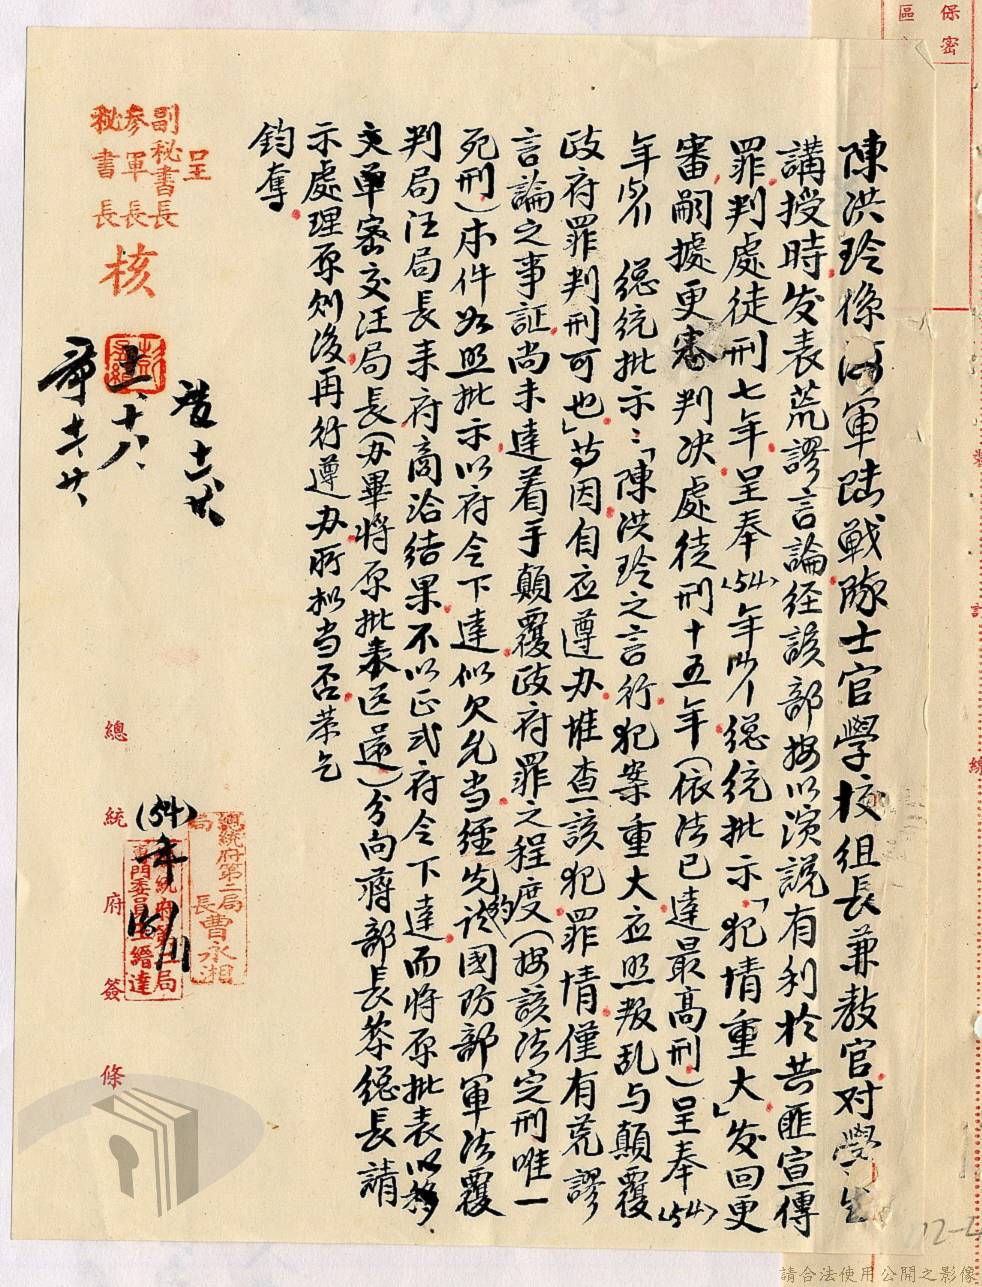 保密
區
陳洪玲係海軍陆戦隊士官學校組長兼教官对學生
講授時发表荒謬言論経該部按以演說有利於共匪宣傳
罪判處徒刑七年呈奉(54)年 総統批示「犯情重大」发回更
審嗣據更審判决處徒刑十五年(依法已達最高刑)呈奉(54)
年 総統批示：「陳洪玲之言行犯案重大应照叛乱与顛覆
政府罪判刑可也」等因自应遵办惟查該犯罪情僅有荒謬
言論之事証尚未達着手顛覆政府罪之程度(按該法定刑唯一
死刑)本件如照批示以府令下達似欠允当経先約談國防部軍法覆
判局汪局長来府商洽结果不以正式府令下達而將原批表以移
文單密交汪局長(办畢將原批表送還)分向蔣部長黎総長請
示處理原则後再行遵办所拟当否恭乞
鈞奪
呈
副秘書長
參軍長
秘書長
核
十八
總統府第二局
局長曹永湘
(54)年
專門委員王縉達
總統府簽條
裝
訂
線
12-4
請合法使用公開之影像